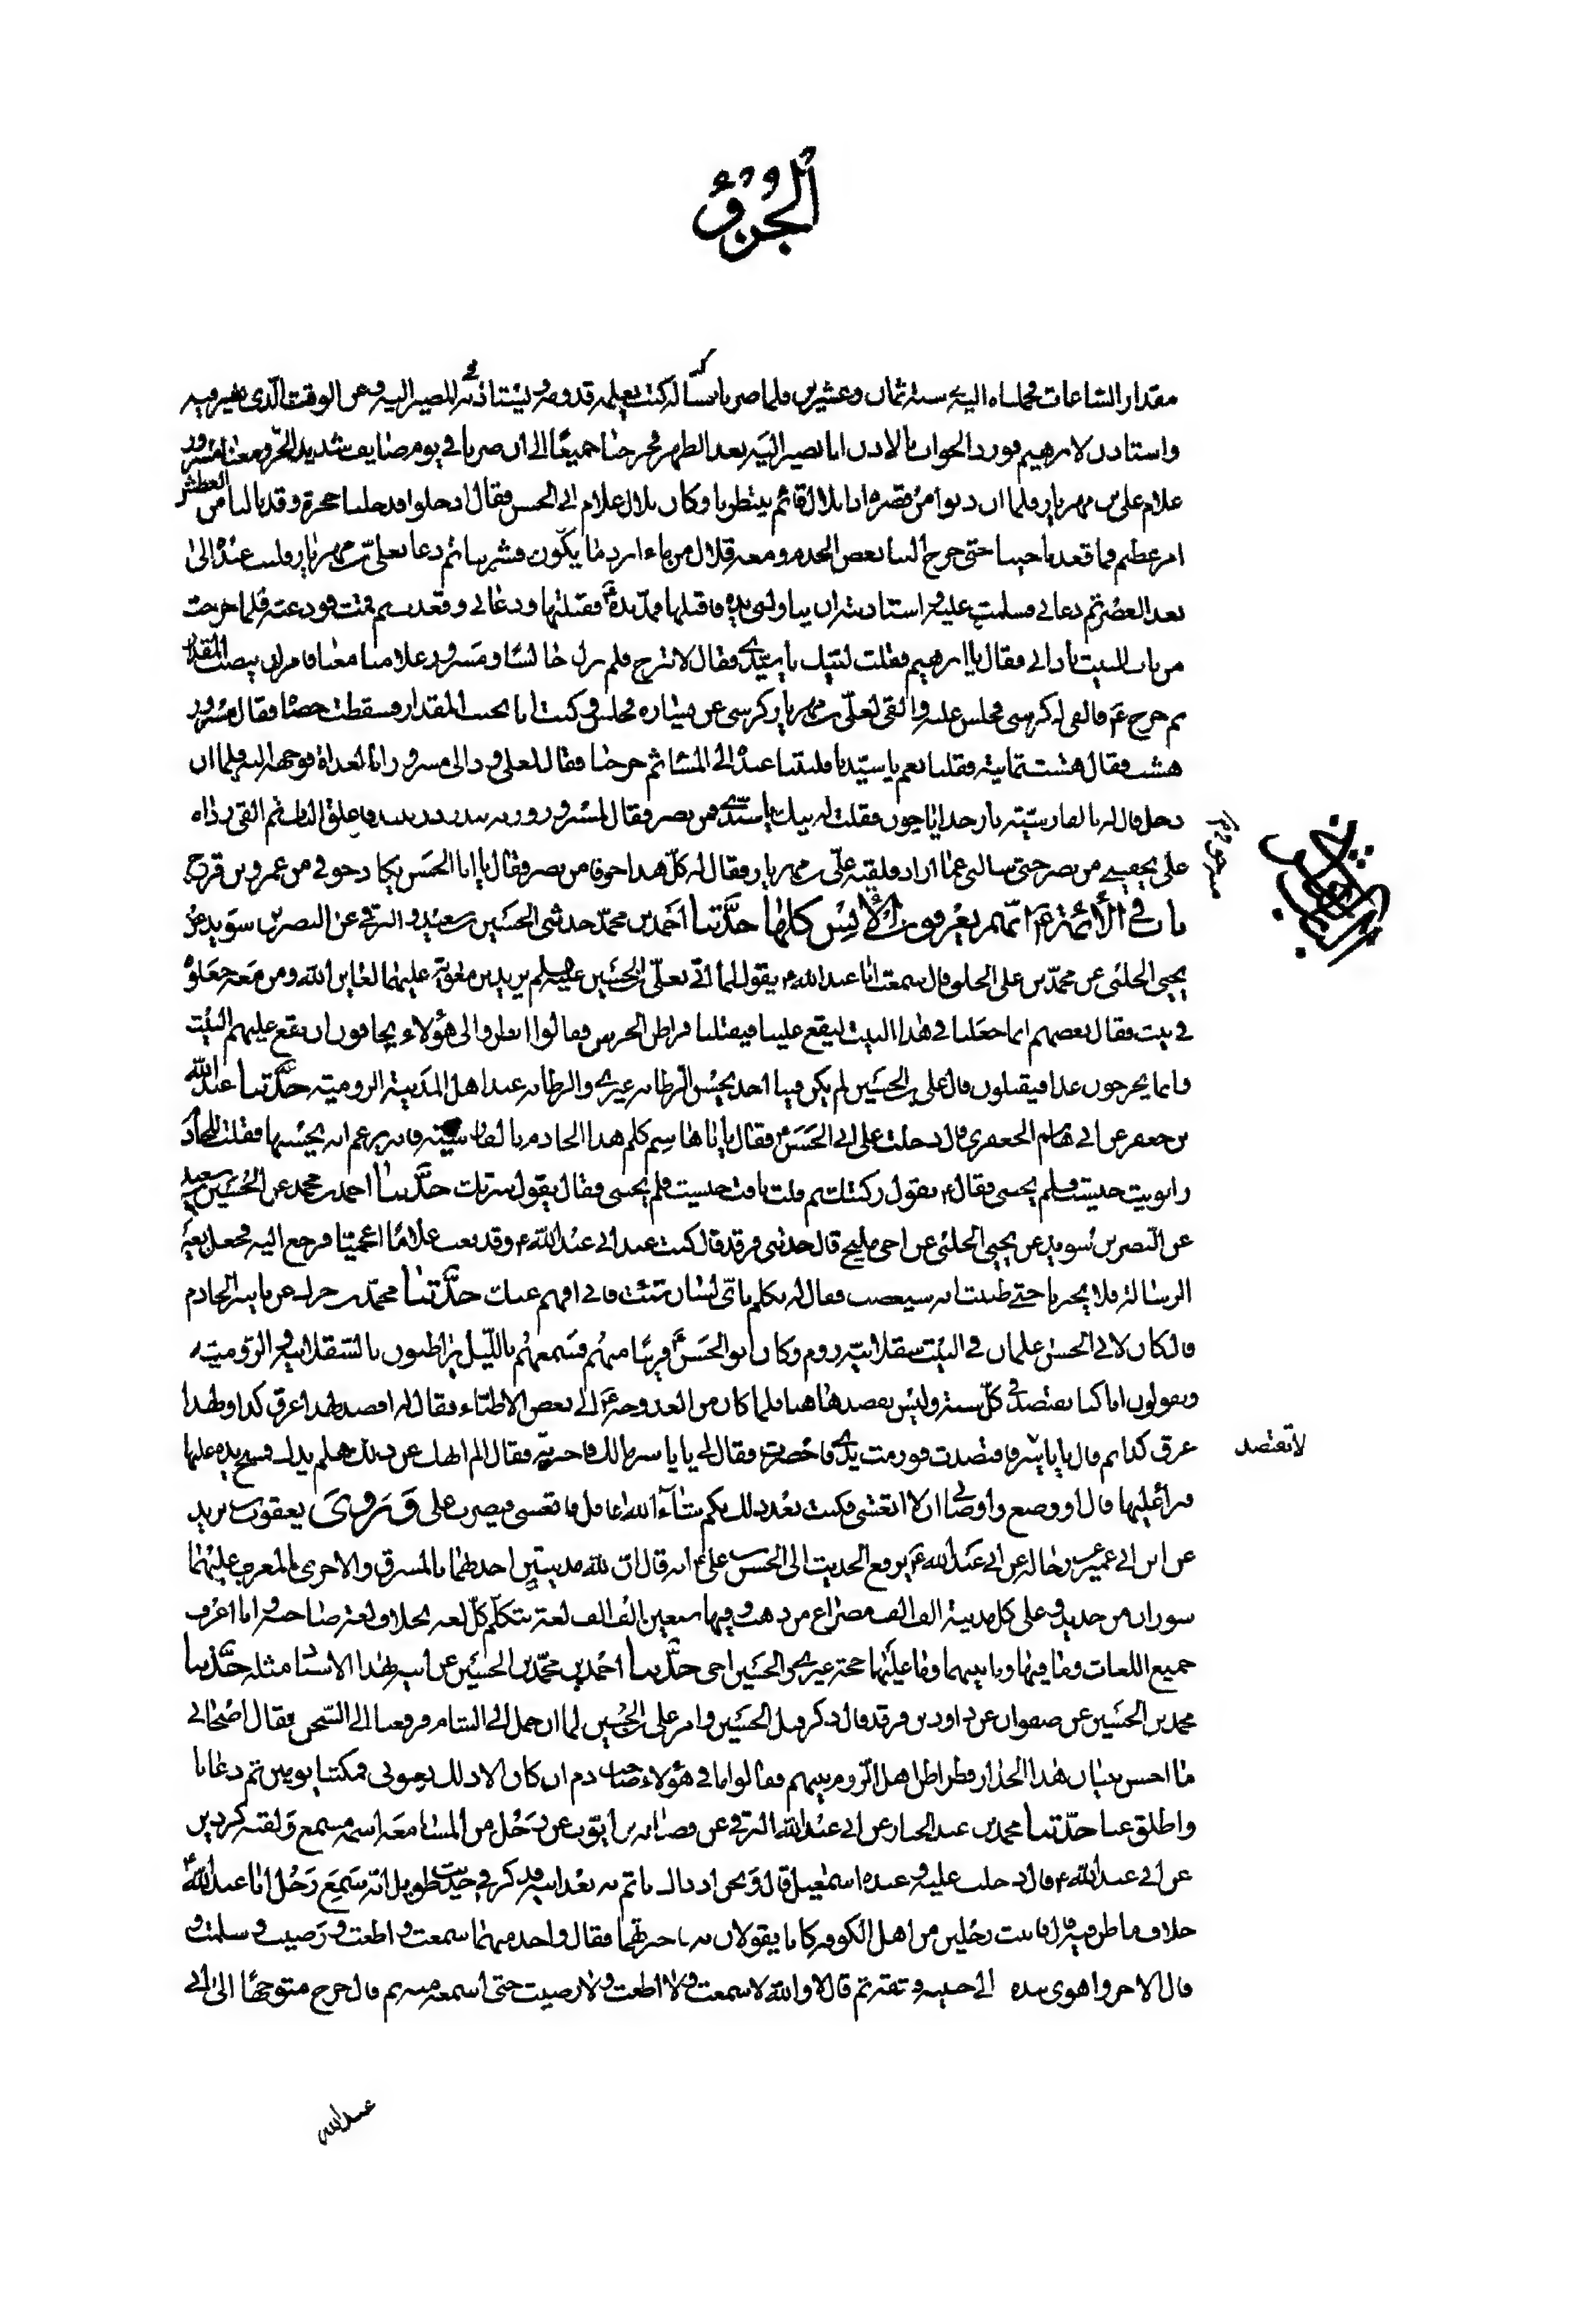 الجزؤ
مقدار الساعات فحملناه اليه سنة ثمان وعشرين فلما صرنا بسيالة كتب يعلمه قدومه ويستاذنه للمصير اليه وعن الوقت الذى نسير فيه
واستاذن لابرهيم فورد الجواب بالاذن انا نصير اليه بعد الظهر فخرجنا جميعا الى ان صرنا في يوم صايف شديد الحر ومعنا مسرور
غلام على بن مهزيار فلما ان دنوا من قصره اذا بلال قائم ينتظرنا وكان بلال غلام ابى الحسن فقال ادخلوا فدخلنا حجرة وقد نالنا من العطش
امر عظيم فما قعدنا حينا حتى خرج الينا بعض الخدم ومعه قلال من ماء ابرد ما يكون فشربنا ثم دعا بعلى بن مهزيار فلبث عنده الى
بعد العصر ثم دعانى فسلمت عليه واستاذنته ان يناولنى يده فاقبلها فمد يده فقبلتها ودعانى وقعدت ثم قمت فودعته فلما خرجت
من باب البيت نادانى فقال يا ابرهيم فقلت لبيك يا سيدى فقال لا تبرح فلم نزل جالسا ومسرور غلامنا معنا فامر ان ينصب المقدار
ثم خرج ع فالقى له كرسى فجلس عليه والقى لعلى بن مهزيار كرسى عن يساره فجلس وكنت انا بجنب المقدار فسقطت حصاة فقال مسرور
هشت فقال هشت ثمانية فقلنا نعم يا سيدنا فلبثنا عنده الى المساء ثم خرجنا فقال لعلى رد الى مسرور بالغداة فوجهه اليه فلما ان
دخل قال له بالفارسية بار خدايا چون فقلت له نيك يا سيدى فمر نصر فقال لمسرور در ببند در ببند فاغلق الباب ثم القى رداه
على يخفينى من نصر حتى سالنى عما اراد فلقيه على بن مهزيار فقال له كل هذا خوفا من نصر فقال يا ابا الحسن يكاد خوفى من عمرو بن قرح
باب في الأئمة ع انهم يعرفون الالسن كلها حدثنا احمد بن محمد حدثنى الحسين بن سعيد والبرقى عن النصر بن سويد عن
يحيى الحلبى عن محمد بن على الحلبى قال سمعت ابا عبد الله ع يقول لما اتى بعلى بن الحسين عليه السلم يزيد بن معوية عليهما لعاين الله ومن معه جعلوه
في بيت فقال بعضهم انما جعلنا في هذا البيت ليقع علينا فيقتلنا فراطن الحرس فقالوا انظروا الى هؤلاء يخافون ان يقع عليهم البيت
وانما يخرجون غدا فيقتلون قال على بن الحسين لم يكن فينا احد يحسن الرطانه غيرى والرطانه عند اهل المدينة الرومية حدثنا عبد الله
بن جعفر عن ابى هاشم الجعفرى قال دخلت على ابى الحسن ع فقال يا ابا هاشم كلم هذا الخادم بالفارسية فانه يزعم انه يحسنها فقلت للخادم
زانويت چيست فلم يجبنى فقال ع يقول ركبتك ثم قلت نافت چيست فلم يجبنى فقال يقول سرتك حدثنا احمد بن محمد عن الحسين بن سعيد
عن النصر بن سويد عن يحيى الحلبى عن اخى مليح قال حدثنى فرقد قال كنت عند ابى عبد الله ع وقد بعث غلاما اعجميا فرجع اليه فجعل يغير
الرسالة فلا يخبرنا حتى ظننت انه سيغضب فقال له تكلم باى لسان شئت فانى افهم عنك حدثنا محمد بن جزك عن ياسر الخادم
قال كان لابى الحسن غلمان في البيت سقلابية روم وكان ابو الحسن ع قريبا منهم فسمعهم بالليل يراطنون بالسقلابيه والرومية
ويقولون انا كنا نفتصد في كل سنة وليس نفصد هاهنا فلما كان من الغد وجه ع الى بعض الاطباء فقال له افصد لهذا عرق كذا ولهذا
عرق كذا ثم قال يا ياسر لا تفتصد فافتصدت فورمت يدى فاخضرت فقال لى يا ياسر مالك فاخبرته فقال الم انهك عن ذلك هلم يدك فمسح يده عليها
لا تفتصد
عن ابن ابى عمير عن رجاله عن ابى عبد الله ع يرفع الحديث الى الحسن بن على ع انه قال ان لله مدينتين احدهما بالمشرق والاخرى بالمغرب عليهما
سوران من حديد وعلى كل مدينة الف الف مصراع من ذهب وفيها سبعين الف الف لغة يتكلم كل لغة بخلاف لغة صاحبه وانا اعرف
جميع اللغات وما فيها وما بينهما وما عليهما حجة غيرى والحسين اخى حدثنا احمد بن محمد بن الحسين عن ابيه بهذا الاسناد مثله حدثنا
محمد بن الحسين عن صفوان عن داود بن فرقد قال ذكر قتل الحسين وامر على بن الحسين لما ان حمل الى الشام فرفعنا الى السجن فقال اصحابى
ما احسن بنيان هذا الجدار فطراطن اهل الروم بينهم فقالوا ما في هؤلاء صاحب دم ان كان الا ذلك يعنونى فمكثنا يومين ثم دعانا
واطلق عنا حدثنا محمد بن عبد الجبار عن ابى عبد الله البرقى عن فضالة بن ايوب عن رجل من المسامعة اسمه مسمع ولقبه كردين
عن ابى عبد الله ع قال دخلت عليه وعنده اسمعيل قال ونحن اذ ذاك ناتم به بعد ابيه فذكر في حديث طويل انه سمع رجل ابا عبد الله ع
خلاف ما ظن فيه قال فاتيت رجلين من اهل الكوفه كانا يقولان به فاخبرتهما فقال واحد منهما سمعت واطعت ورضيت وسلمت و
قال الاخر واهوى بيده الى جيبه فشقه ثم قال لا والله لا سمعت ولا اطعت ولا رضيت حتى اسمعه منه ثم قال خرج متوجها الى ابى
عبد الله